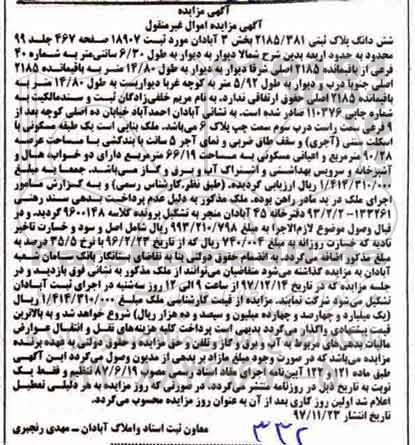 آگهی مزایده
آگهی مزایده اموال غیرمنقول
شش دانگ پلاک ثبتی ۲۱۸۵/۳۸۱ بخش ۳ آبادان مورد ثبت ۱۸۹۰۷ صفحه ۴۶۷ جلد ۹۹
محدود به حدود اربعه بدین شرح شمالا دیوار به دیوار به طول ۶/۳۰ سانتی‌متر به شماره ۴۰
فرعی از باقیمانده ۲۱۸۵ شرقا دیوار به دیوار به طول ۱۴/۸۰ متر به باقیمانده ۲۱۸۵
اصلی جنوبا درب و دیوار به طول ۵/۹۲ متر به کوچه غربا دیواریست به طول ۱۴/۸۰ متر به
باقیمانده ۲۱۸۵ اصلی حقوق ارتفاقی ندارد. به نام مریم خلفی‌زادگان ثبت و سندمالکیت به
شماره چاپی ۱۱۰۳۷۶ صادر شده است. به نشانی آبادان احمدآباد خیابان ده اصلی کوچه بعد از
۹ فرعی سمت راست درب سوم سمت چپ پلاک ۶ می‌باشد. ملک بنایی است یک طبقه مسکونی با
اسکلت سنتی (آجری) و سقف طاق ضربی و نمای آجر ۵ سانت با بندکشی با مساحت عرصه
۹۰/۲۸ مترمربع و اعیانی مسکونی به مساحت ۶۶/۱۹ مترمربع دارای دو خواب هال و
آشپزخانه و سرویس بهداشتی و اشتراک آب و برق و گاز می‌باشد. جمعا به مبلغ
۱/۴۱۴/۳۱۰/۰۰۰ ریال ارزیابی گردیده. (طبق نظر کارشناس رسمی) و به گزارش مامور
اجرای ملک در ید مادر راهن بوده. ملک مذکور به دلیل عدم پرداخت بدهی سند رهنی
۱۳۳۲۶۱-۹۳/۲/۲ دفترخانه ۴۵ آبادان منجر به تشکیل پرونده کلاسه ۹۶۰۰۱۴۸ گردید. و در
قبال وصول موضوع لازم‌الاجرا به مبلغ ۹۹۳/۲۱۰/۷۹۸ ریال شامل اصل و سود و خسارت تاخیر
تادیه که خسارت روزانه به مبلغ ۷۴۰/۰۰۴ ریال که از تاریخ ۹۶/۲/۲۳ با نرخ ۳۵/۵ درصد به
مبلغ مذکور اضافه می‌گردد. به انضمام حقوق دولتی بنا به تقاضای بستانکار بانک سامان شعبه
آبادان به مزایده گذاشته می‌شود متقاضیان می‌توانند از ملک مذکور به نشانی فوق بازدید و در
جلسه مزایده که در تاریخ ۹۷/۱۲/۱۴ از ساعت ۹ الی ۱۲ روز سه‌شنبه در اجرای ثبت آبادان
تشکیل می‌شود شرکت نمایند. مزایده از قیمت کارشناسی ملک مبلغ ۱/۴۱۴/۳۱۰/۰۰۰ ریال
(یک میلیارد و چهارصد و چهارده میلیون و سیصد و ده هزار ریال) شروع خواهد شد و به بالاترین
قیمت پیشنهادی واگذار می‌گردد بدیهی است پرداخت کلیه هزینه‌های نقل و انتقال عوارض
مالیات بدهی‌های مربوط به آب و برق و گاز و تلفن و حق مزایده و حقوق دولتی به عهده برنده
مزایده می‌باشد که در صورت وجود مبلغ مازاد بر بدهی از مدیون وصول می‌گردد این آگهی
طبق ماده ۱۲۱ و ۱۲۲ آیین‌نامه اجرای مفاد اسناد رسمی مصوب ۸۷/۶/۱۹ تنظیم و فقط یک
نوبت به تاریخ ذیل در روزنامه منتشر می‌گردد. در صورتی که روز مزایده به هر دلیلی تعطیل
اعلام شد اولین روز کاری بعد از آن به عنوان روز مزایده محسوب می‌گردد.
تاریخ انتشار ۹۷/۱۱/۲۳
معاون ثبت اسناد واملاک آبادان - مهدی رنجبری
۳۳۲